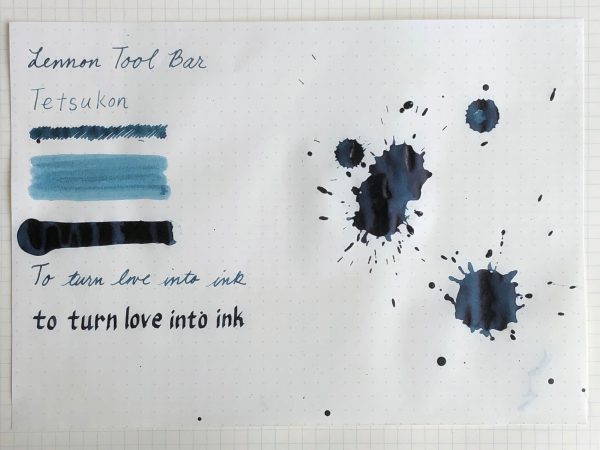 Lennon Tool Bar
Tetsukon
To turn love into ink
to turn love into ink